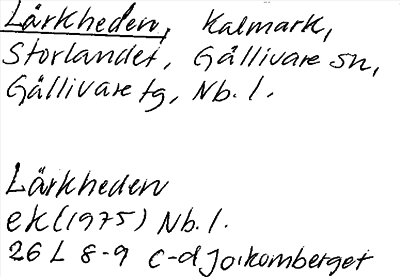 Lärkheden, Kalmark,
Storlandet, Gällivare sn,
Gällivare tg, Nb. l.
Lärkheden
ek (1975) Nb. l.
26 L 8-9 c-d Joikomberget